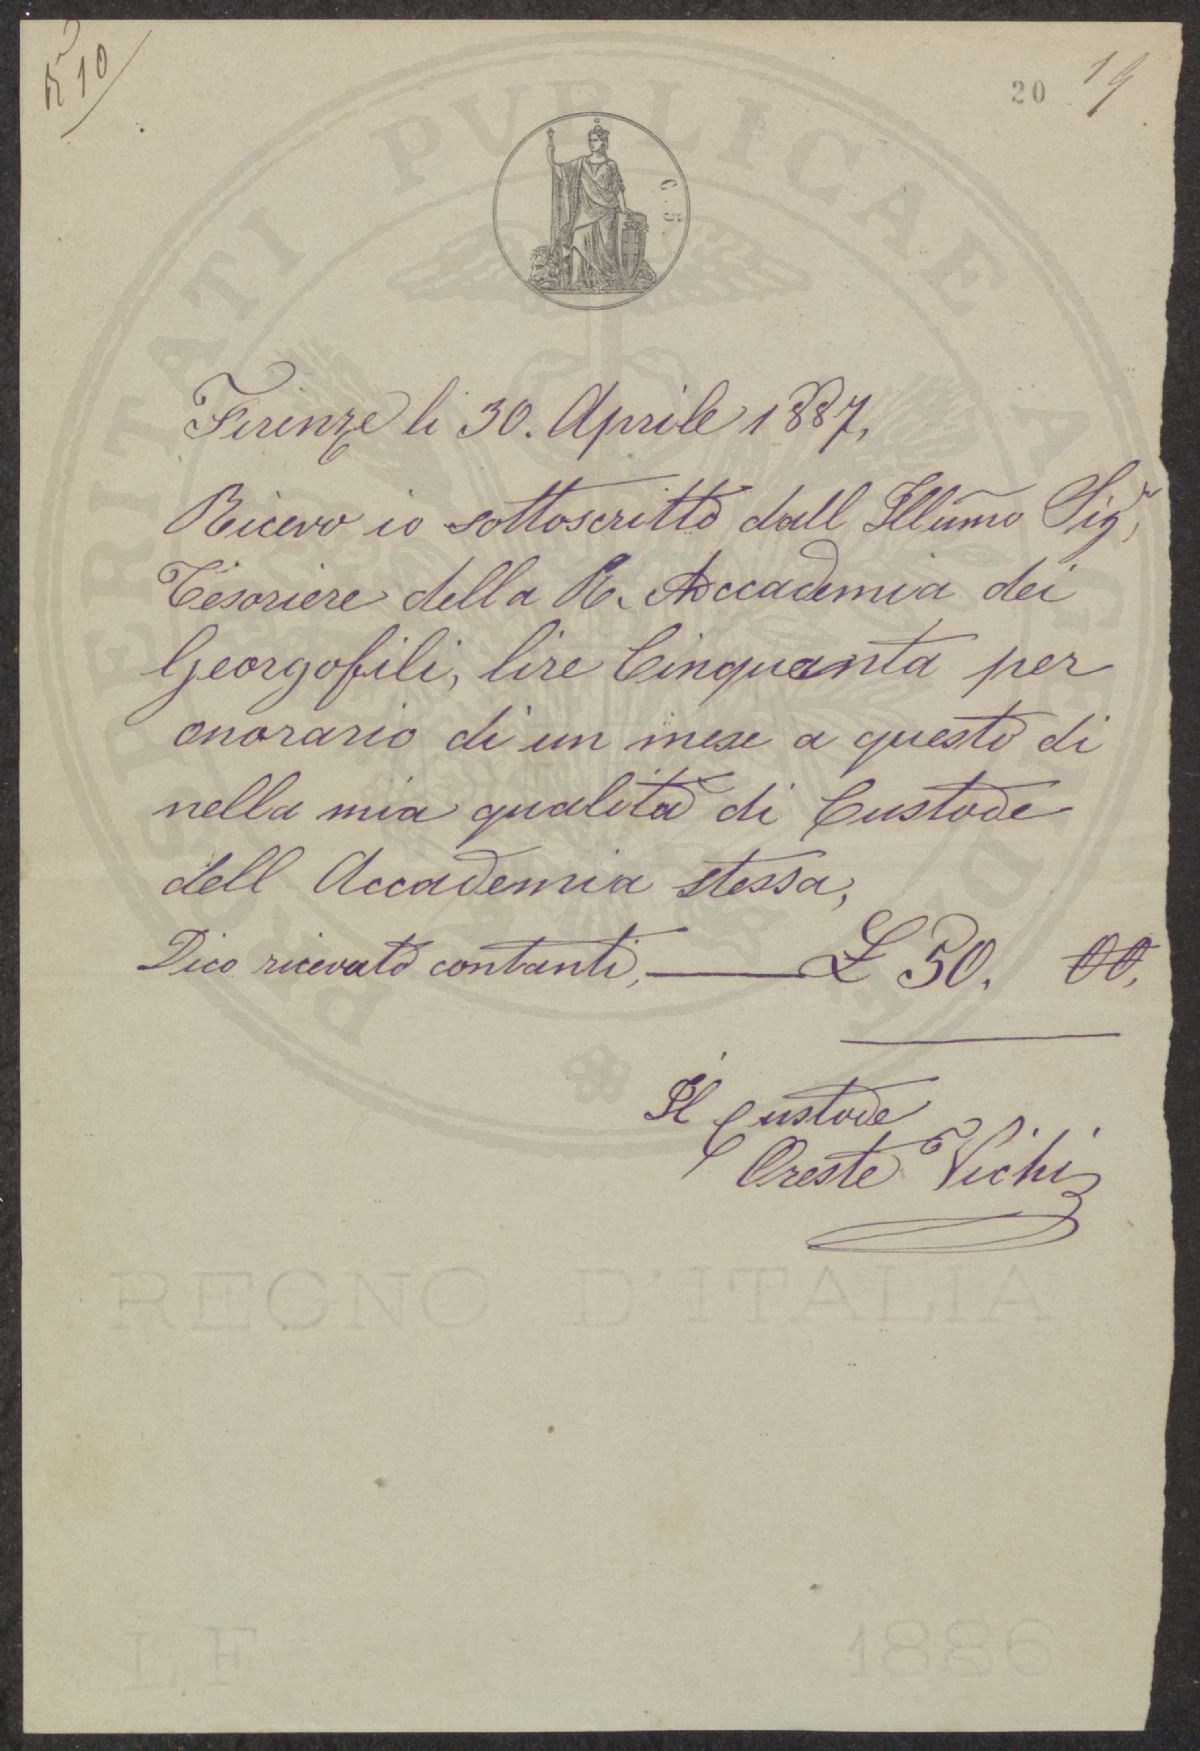 N° 10
20 19
C. 5.
PROSPERITATI PUBLICAE
Firenze li 30. Aprile 1887,
Ricevo io sottoscritto dall Illumo Sigr,
Tesoriere della R. Accademia dei
Georgofili, lire Cinquanta per
onorario di un mese a questo di
nella mia qualità di Custode
dell Accademia stessa,
Dico ricevuto contanti, £ 50. 00,
Il Custode
Oreste Vichi
REGNO D'ITALIA
LF 1886